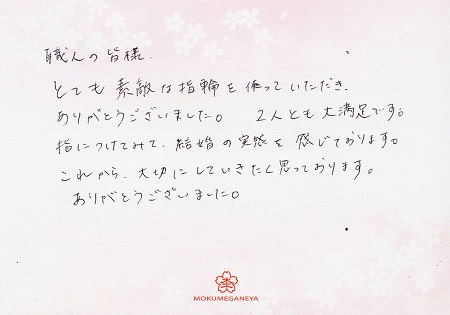 職人の皆様
とても素敵な指輪を作っていただき、
ありがとうございました。 2人とも大満足です。
指につけてみて、結婚の実感を感じております。
これから、大切にしていきたく思っております。
ありがとうございました。
MOKUMEGANEYA